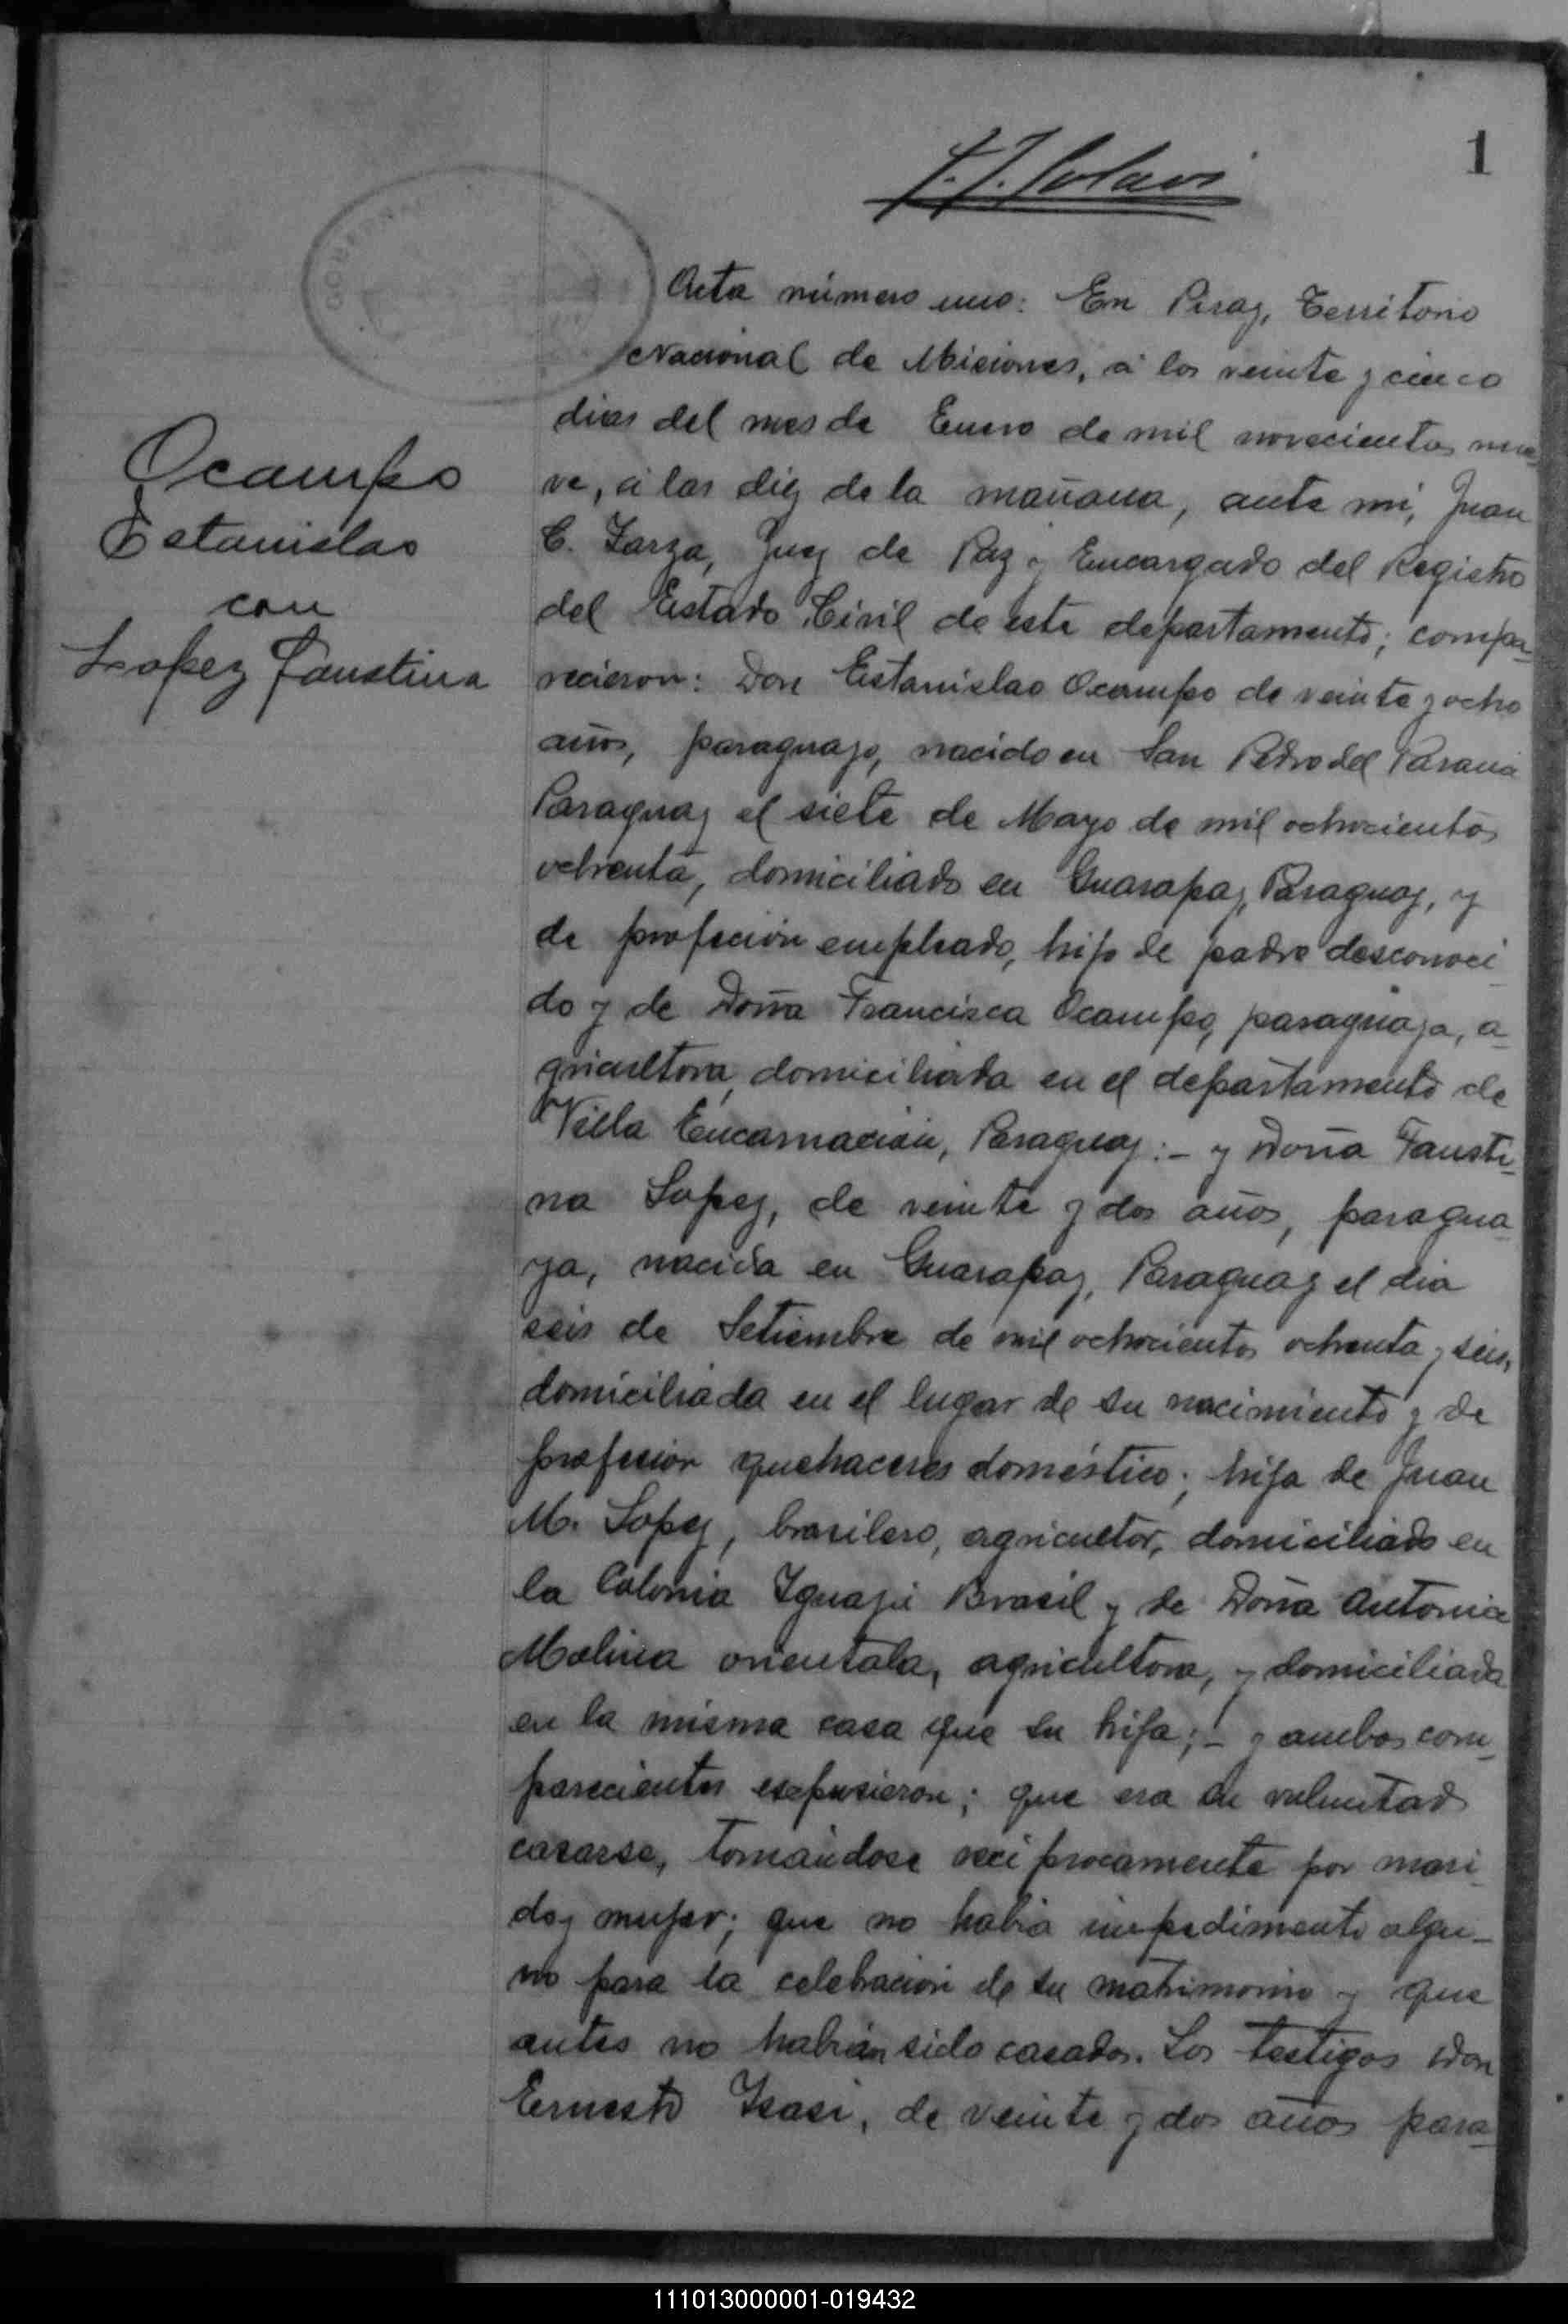 1
Acta número uno: En Piray, Territorio
Nacional de Misiones, á los veinte y cinco
dias del mes de Enero de mil novecientos nue-
ve, á las diez de la mañana, ante mi, Juan
C. Zarza, Juez de Paz y Encargado del Registro
del Estado Civil de este departamento; compa-
recieron: Don Estanislao Ocampo de veinte y ocho
años, paraguayo, nacido en San Pedro del Paraná
Paraguay el siete de Mayo de mil ochocientos
ochenta, domiciliado en Guarapay, Paraguay, y
de profesión empleado, hijo de padre desconoci
do y de Doña Francisca Ocampo, paraguaya, a-
gricultora, domiciliada en el departamento de
Villa Encarnación, Paraguay:- y Doña Fausti-
na Lopez, de veinte y dos años, paragua-
ya, nacida en Guarapay, Paraguay el dia
seis de Setiembre de mil ochocientos ochenta y seis,
domiciliada en el lugar de su nacimiento y de
profesion quehaceres doméstico; hija de Juan
M. Lopez, brasilero, agricultor, domiciliado en
la Colonia Brasil y de Doña Antonia
Molina orientala, agricultora, y domiciliada
en la misma casa que su hija;- y ambos com-
parecientes expusieron; que era su voluntad
casarse, tomándose reciprocamente por mari
do y mujer; que no habia impedimento algu-
no para la celebración de su matrimonio y que
antes no habian sido casados. Los testigos Don
Ernesto Isasi, de veinte y dos años para-
Ocampo
Estanislao
con
Lopez Faustina
111013000001-019432